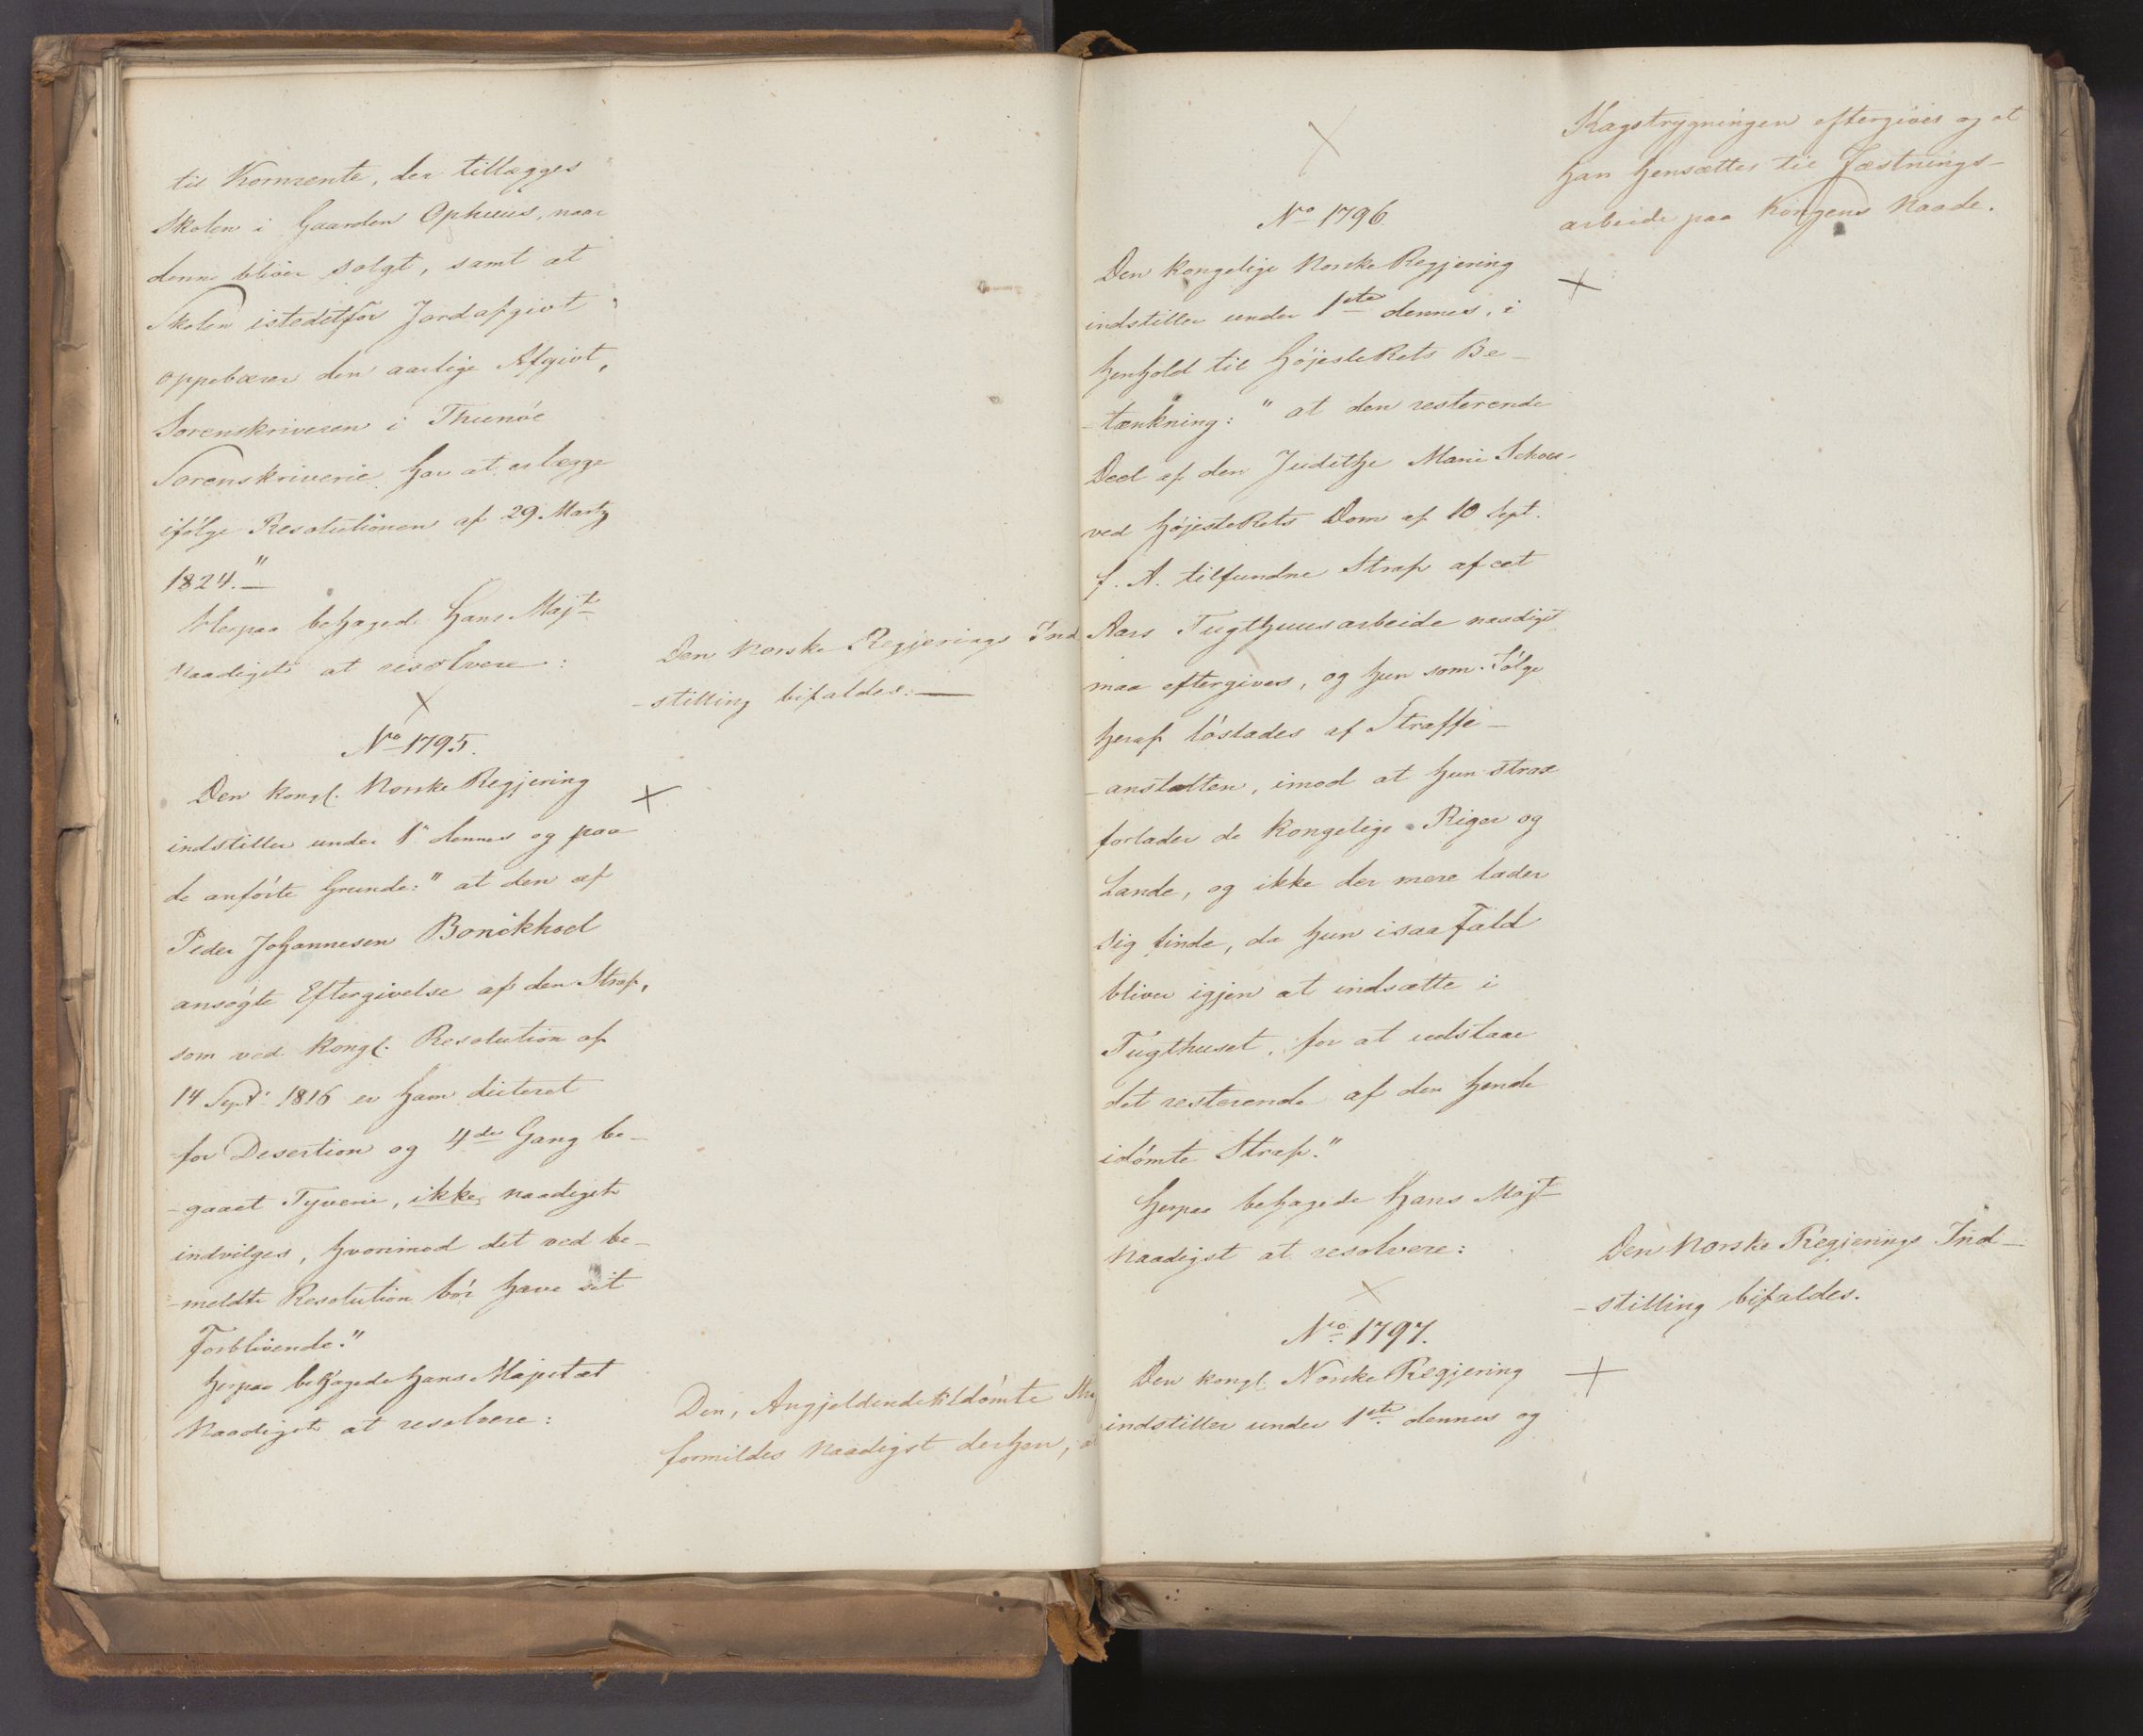 til Kornrente, der tillægges
Skolen i Gaarden Ophuus, naar
denne bliver solgt, samt at
Skolen istedetfor Jordafgivt
oppebærer den aarlige Afgivt,
Sorenskriveren i Thunøe
Sorenskriverie har at erlægge
ifølge Resolutionen af 29 Martz
1824."
Herpaa behagede Hans Majt
Naadigst at resolvere:
Den Norske Regjerings Ind
-stilling bifaldes.
No 1795.
Den Kongl. Norske Regjering
indstiller under 1' dennes og paa
de anførte Grunde: "at den af
Peder Johannesen Bonekhoel
ansøgte Eftergivelse af den Straf,
som ved Kongl. Resolution af
14 Septr 1816 er ham dicteret
for Desertion og 4de Gang be-
-gaaet Tyverie, ikke naadigst
indvilges, hvorimod det ved be-
-meldte Resolution bør have sit
Forblivende."
Herpaa behagede Hans Majestæt
Naadigst at resolvere:
Den, Angjeldende tildømte
formildes Naadigst derhen,
Kagstrygningen eftergives og at
han hensættes til Fæstnings-
arbeide paa Kongens Naade.
No 1796
Den Kongelige Norske Regjering
indstiller under 1ste dennes, i
Henhold til HøjesteRets Be-
-tænkning: "at den resterende
Deel af den Judithe Marie Schou
ved HøjesteRets Dom af 10 Sept.
f. A. tilfundne Straf af eet
Aars Tugthuusarbeide naadigst
maa eftergives, og hun som Følge
heraf løslades af Straffe-
-anstalten, imod at hun strax
forlader de Kongelige Riger og
Lande, og ikke der mere lader
sig finde, da hun isaafald
bliver igjen at indsætte i
Tugthuset, for at udstaae
det resterende af den hende
idømte Straf."
Herpaa behagede Hans Majt
Naadigst at resolvere:
Den Norske Regjerings Ind-
-stilling bifaldes.
No 1797.
Den Kongl. Norske Regjering
indstiller under 1ste dennes og